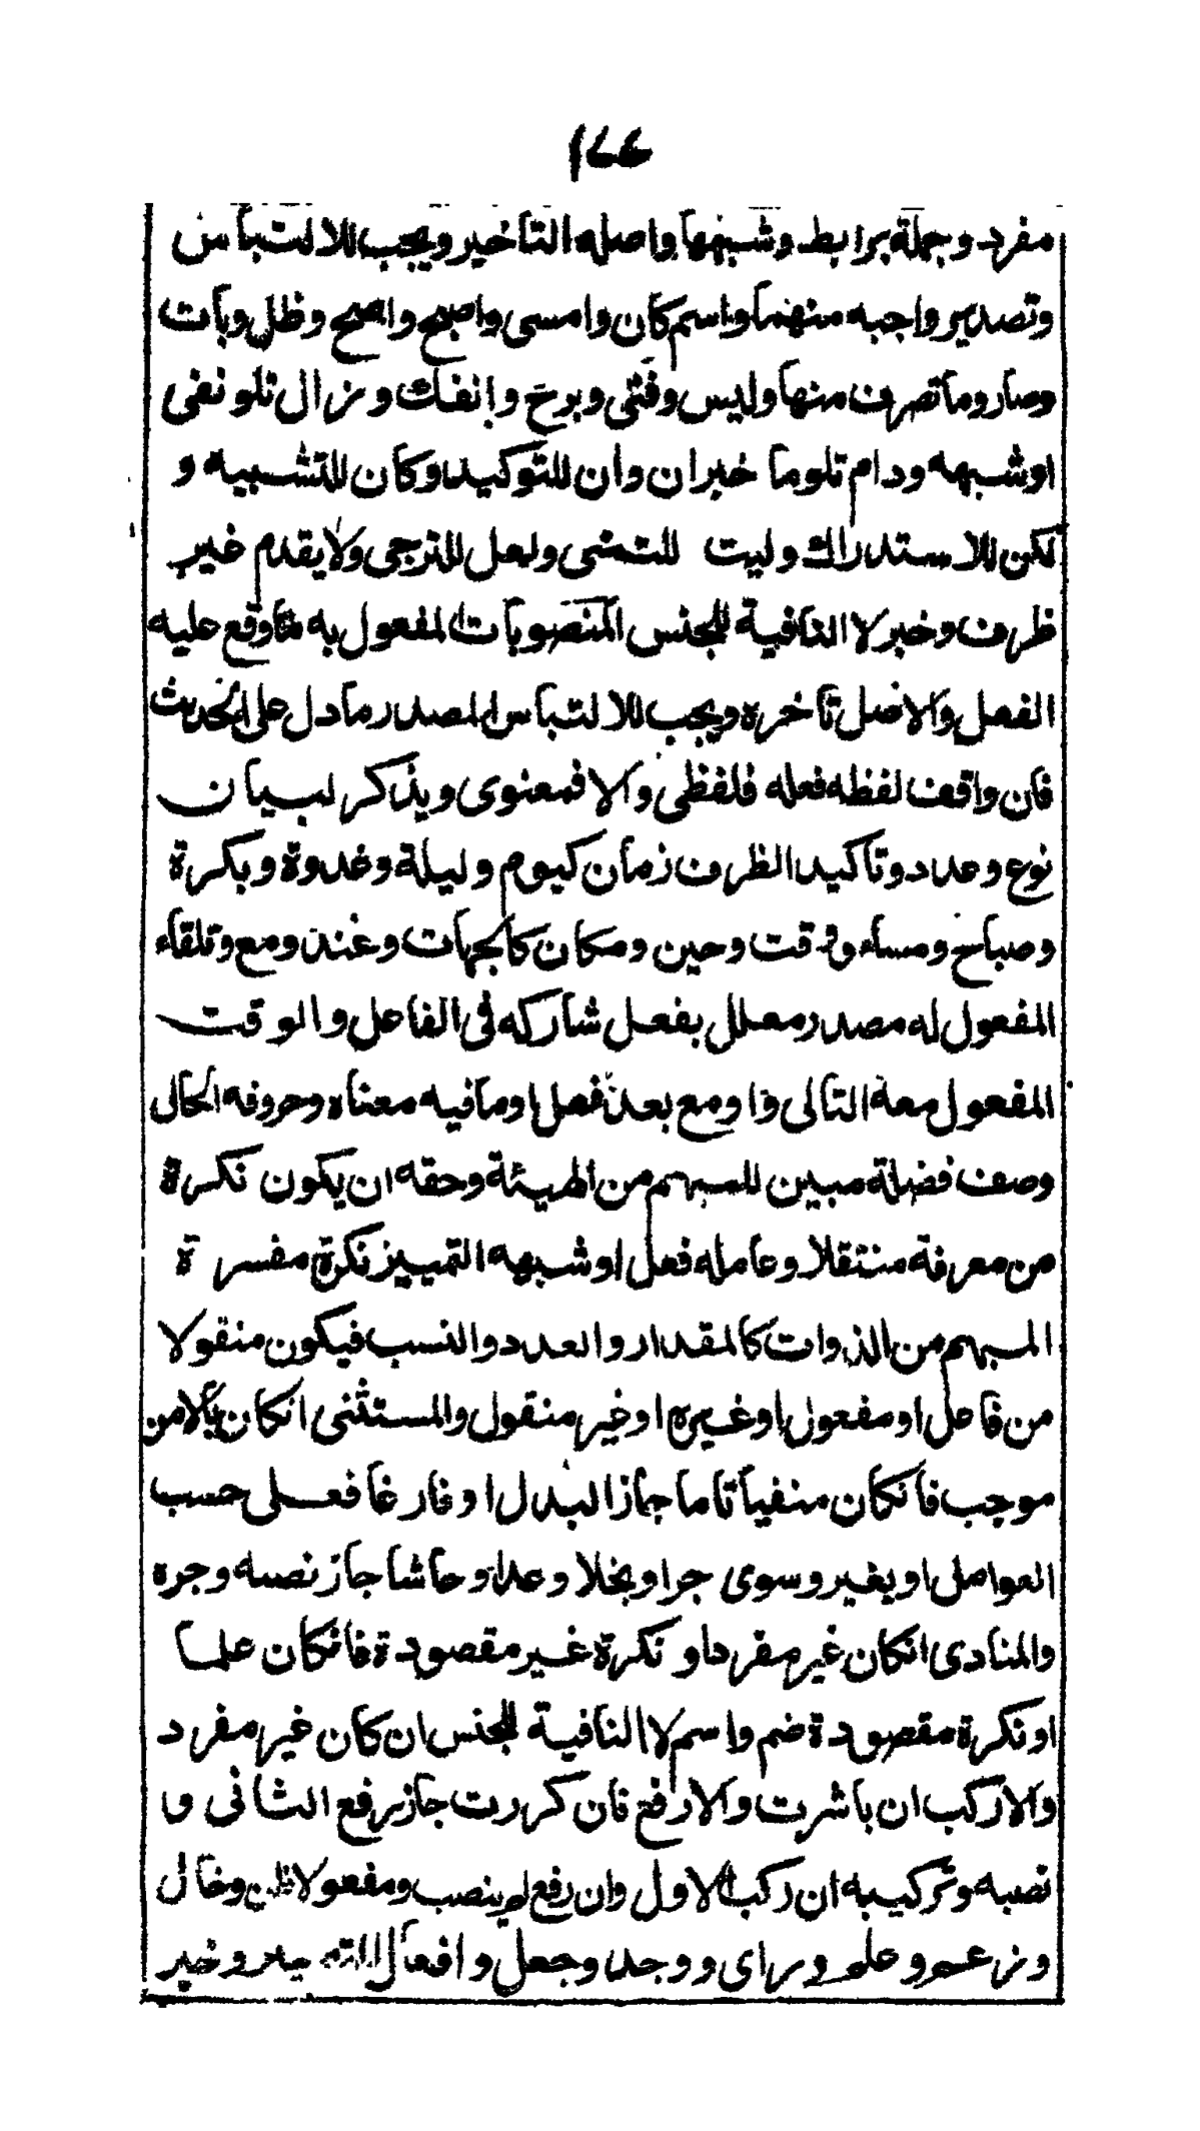 ١٧٧
مفرد وجملة برابط وشبهها واصله التأخير ويجب للالتباس
وتصدير واجبه منهما واسم كان وامسى واصبح واضحى وظل وبات
وصار وما تصرف منها وليس وفتى وبرح وانفك وزال تلو نفى
او شبهه ودام تلو ما خبر ان وأن للتوكيد وكأن للتشبيه و
لكن للاستدراك وليت للتمنى ولعل للترجى ولا يقدم غير
ظرف وخبر لا النافية للجنس المنصوبات المفعول به ما وقع عليه
الفعل والاصل تأخره ويجب للالتباس المصدر ما دل على الحدث
فان وافق لفظه فعله فلفظى والا فمعنوى ويذكر لبيان
نوع وعدد وتأكيد الظرف زمان كيوم وليلة وغدوة وبكرة
وصباح ومساء ووقت وحين ومكان كالجهات وعند ومع وتلقاء
المفعول له مصدر معلل بفعل شاركه فى الفاعل والوقت
المفعول معه التالى واو مع بعد فعل او ما فيه معناه وحروفه الحال
وصف فضلة مبين للمبهم من الهيئة وحقه ان يكون نكرة
من معرفة منتقلا وعامله فعل او شبهه التمييز نكرة مفسرة
المبهم من الذوات كالمقدار والعدد والنسب فيكون منقولا
من فاعل او مفعول او غيره او غير منقول والمستثنى انكان بالا من
موجب فانكان منفيا تاما جاز البدل او فارغا فعلى حسب
العوامل او بغير وسوى جر او بخلا وعدا وحاشا جاز نصبه وجره
والمنادى انكان غير مفرد او نكرة غير مقصودة فانكان علما
او نكرة مقصودة ضم واسم لا النافية للجنس ان كان غير مفرد
والا ركب ان باشرت والا رفع فان كررت جاز رفع الثانى و
نصبه وتركيبه ان ركب الاول وان رفع لم ينصب ومفعولا ظن وخال
وزعم وعلم وراى ووجد وجعل وافعال وخبر